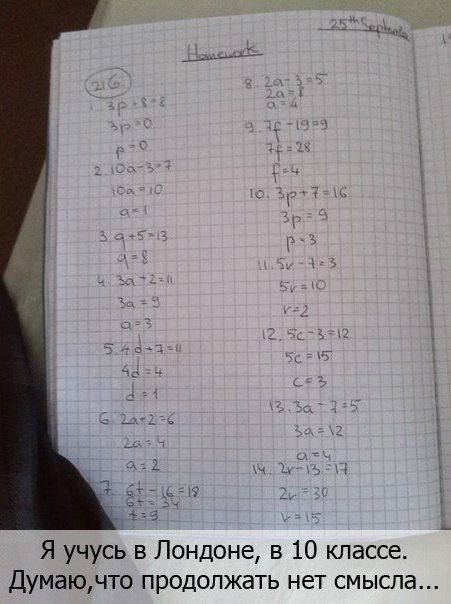 25th September
Homework
21G.
1. 3p+8=8
3p=0
p=0
2. 10a-3=7
10a=10
a=1
3. q+5=13
q=8
4. 3a+2=11
3a=9
a=3
5. 4d+7=11
4d=4
d=1
6. 2a+2=6
2a=4
a=2
7. 6t-16=18
6t=34
t=9
8. 2a-3=5
2a=8
a=4
9. 7f-19=9
7f=28
f=4
10. 3p+7=16
3p=9
p=3
11. 5r-7=3
5r=10
r=2
12. 5c-3=12
5c=15
c=3
13. 3a-7=5
3a=12
a=4
14. 2r-13=17
2r=30
r=15
Я учусь в Лондоне, в 10 классе.
Думаю,что продолжать нет смысла...